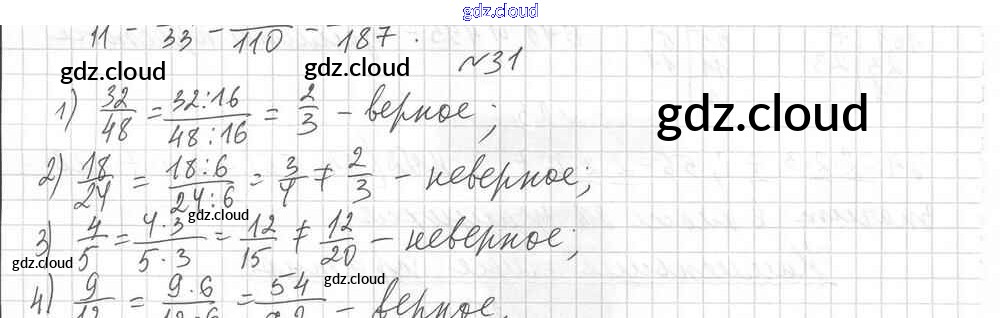 gdz.cloud
11 - 33 - 110 - 187.
gdz.cloud gdz.cloud №31
1) 32/48 = 32:16/48:16 = 2/3 - верное; gdz.cloud
2) 18/24 = 18:6/24:6 = 3/4 ≠ 2/3 - неверное;
gdz.cloud
3) 4/5 = 4·3/5·3 = 12/15 ≠ 12/20 - неверное;
gdz.cloud gdz.cloud
4) 9/12 = 9·6/12·6 = 54/ - верное.